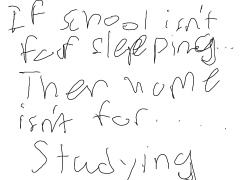 If school isn't
for sleeping...
Then home
isn't for.....
Studying